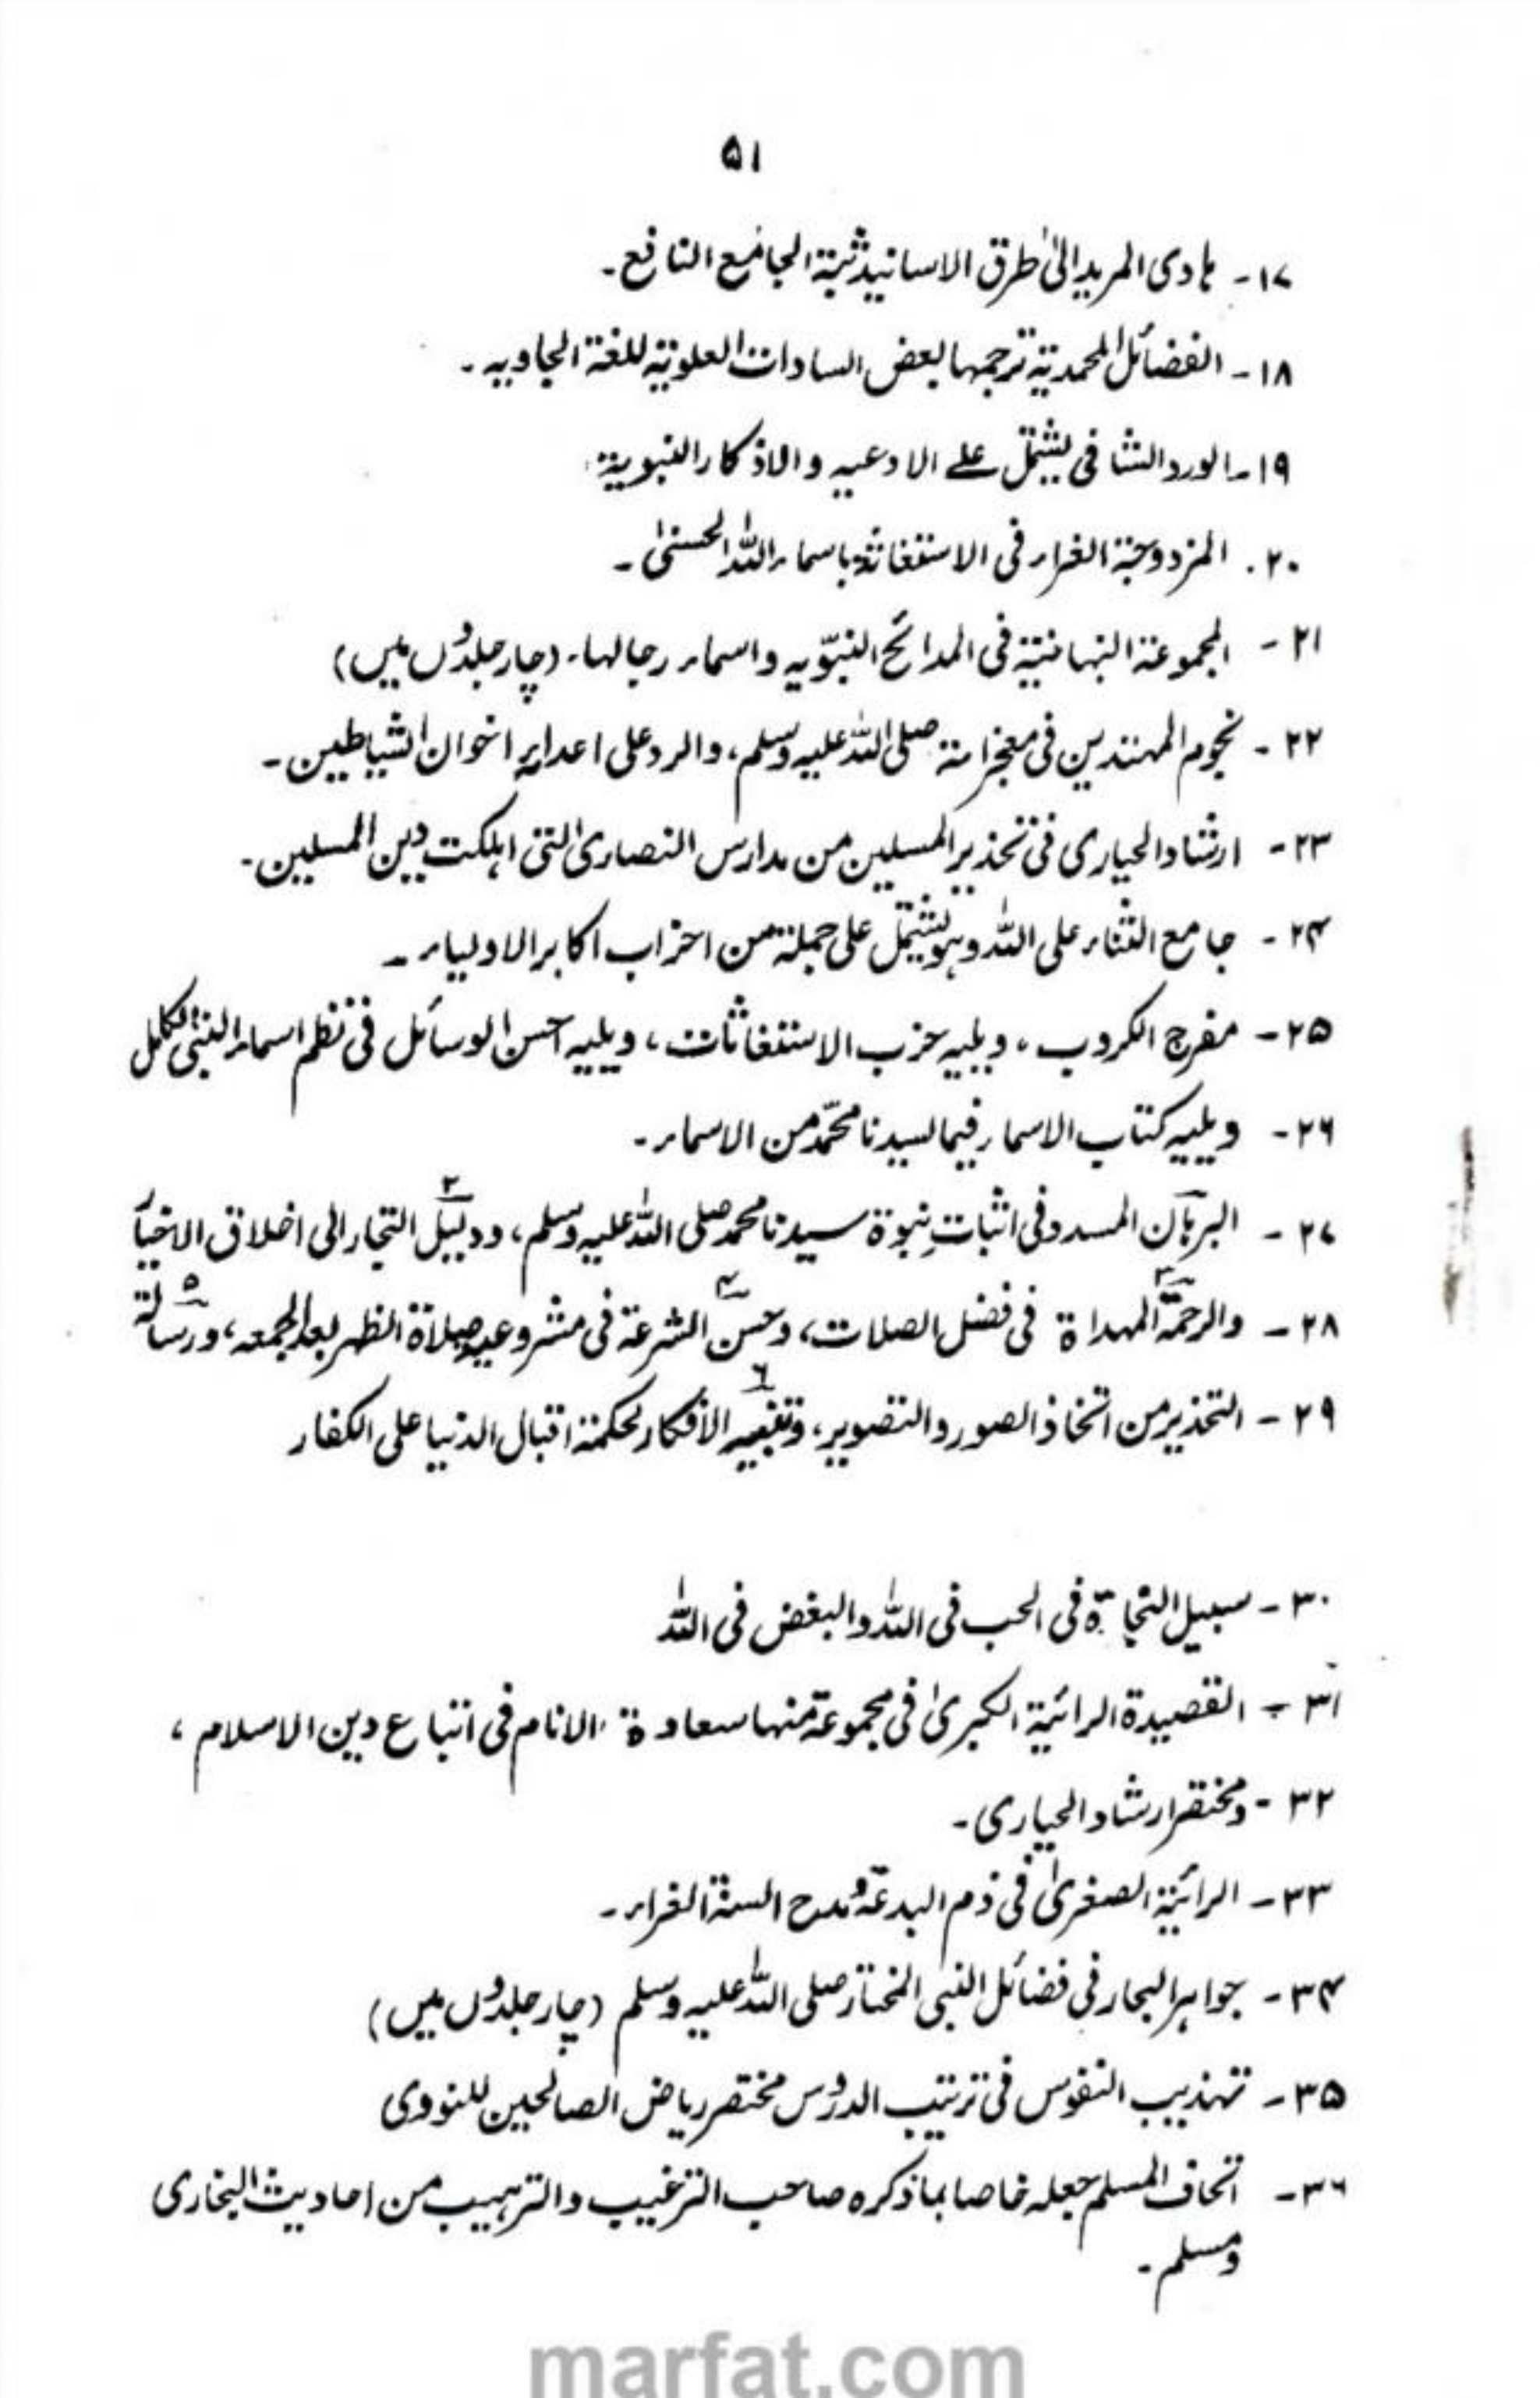 ۵۱
۱۷- ہادی المرید الیٰ طرق الاسانید ثبتہ الجامع النافع۔
۱۸- الفضائل المحمدیۃ ترجمہا بعض السادات العلویۃ للغۃ الجاویہ۔
۱۹- الورد الشافی یشتمل علے الادعیہ والاذکار النبویۃ
۲۰۔ المزدوجۃ الغراء فی الاستغاثۃ باسماء اللہ الحسنیٰ۔
۲۱- المجموعۃ النبہانیۃ فی المدائح النبویہ واسماء رجالہا۔ (چار جلدوں میں)
۲۲- نجوم المہتدین فی معجزاتہ صلی اللہ علیہ وسلم، والرد علی اعدایہ اخوان الشیاطین۔
۲۳- ارشاد الحیاری فی تحذیر المسلین من مدارس النصاریٰ التی اہلکت دین المسلین۔
۲۴- جامع الثناء علی اللہ وہو یشتمل علی جملۃ من احزاب اکابر الاولیاء۔
۲۵- مفرج الکروب، ویلیہ حزب الاستغاثات، ویلیہ احسن الوسائل فی نظم اسماء النبی الکامل
۲۶- ویلیہ کتاب الاسماء فیما لسیدنا محمّد من الاسماء۔
۲۷- البرہان المسدد فی اثبات نبوۃ سیدنا محمد صلی اللہ علیہ وسلم، ۲ ودلیل التجار الی اخلاق الاخیار
۲۸- ۳ والرحمۃ المہداۃ فی فضل الصلات، ۴ وحسن الشرعۃ فی مشروعیہ صلاۃ الظہر بعد الجمعہ، ۵ ورسالۃ
۲۹- التحذیر من اتخاذ الصور والتصویر، ۶ وتنبیہ الافکار لحکمۃ اقبال الدنیا علی الکفار
۳۰- سبیل النجاۃ فی الحب فی اللہ والبغض فی اللہ
۳۱- القصیدۃ الرائیۃ الکبریٰ فی مجموعۃ منہا سعادۃ الانام فی اتباع دین الاسلام،
۳۲- ومختصر ارشاد الحیاری۔
۳۳- الرائیۃ الصغریٰ فی ذم البدعۃ ومدح السنۃ الغراء۔
۳۴- جواہر البحار فی فضائل النبی المختار صلی اللہ علیہ وسلم (چار جلدوں میں)
۳۵- تہذیب النفوس فی ترتیب الدروس مختصر ریاض الصالحین للنووی
۳۶- اتحاف المسلم جعلہ خاصا بما ذکرہ صاحب الترغیب والترہیب من احادیث البخاری
ومسلم۔
marfat.com